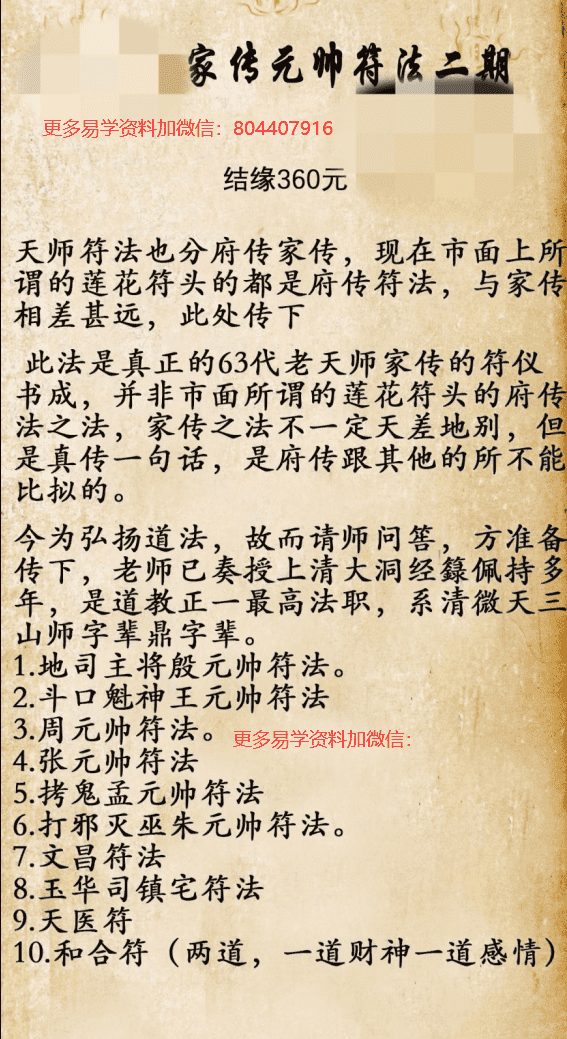 家传元帅符法二期
更多易学资料加微信：804407916
结缘360元
天师符法也分府传家传，现在市面上所
谓的莲花符头的都是府传符法，与家传
相差甚远，此处传下
此法是真正的63代老天师家传的符仪
书成，并非市面所谓的莲花符头的府传
法之法，家传之法不一定天差地别，但
是真传一句话，是府传跟其他的所不能
比拟的。
今为弘扬道法，故而请师问答，方准备
传下，老师已奏授上清大洞经籙佩持多
年，是道教正一最高法职，系清微天三
山师字辈鼎字辈。
1.地司主将殷元帅符法。
2.斗口魁神王元帅符法
3.周元帅符法。
更多易学资料加微信：
4.张元帅符法
5.拷鬼孟元帅符法
6.打邪灭巫朱元帅符法。
7.文昌符法
8.玉华司镇宅符法
9.天医符
10.和合符（两道，一道财神一道感情）